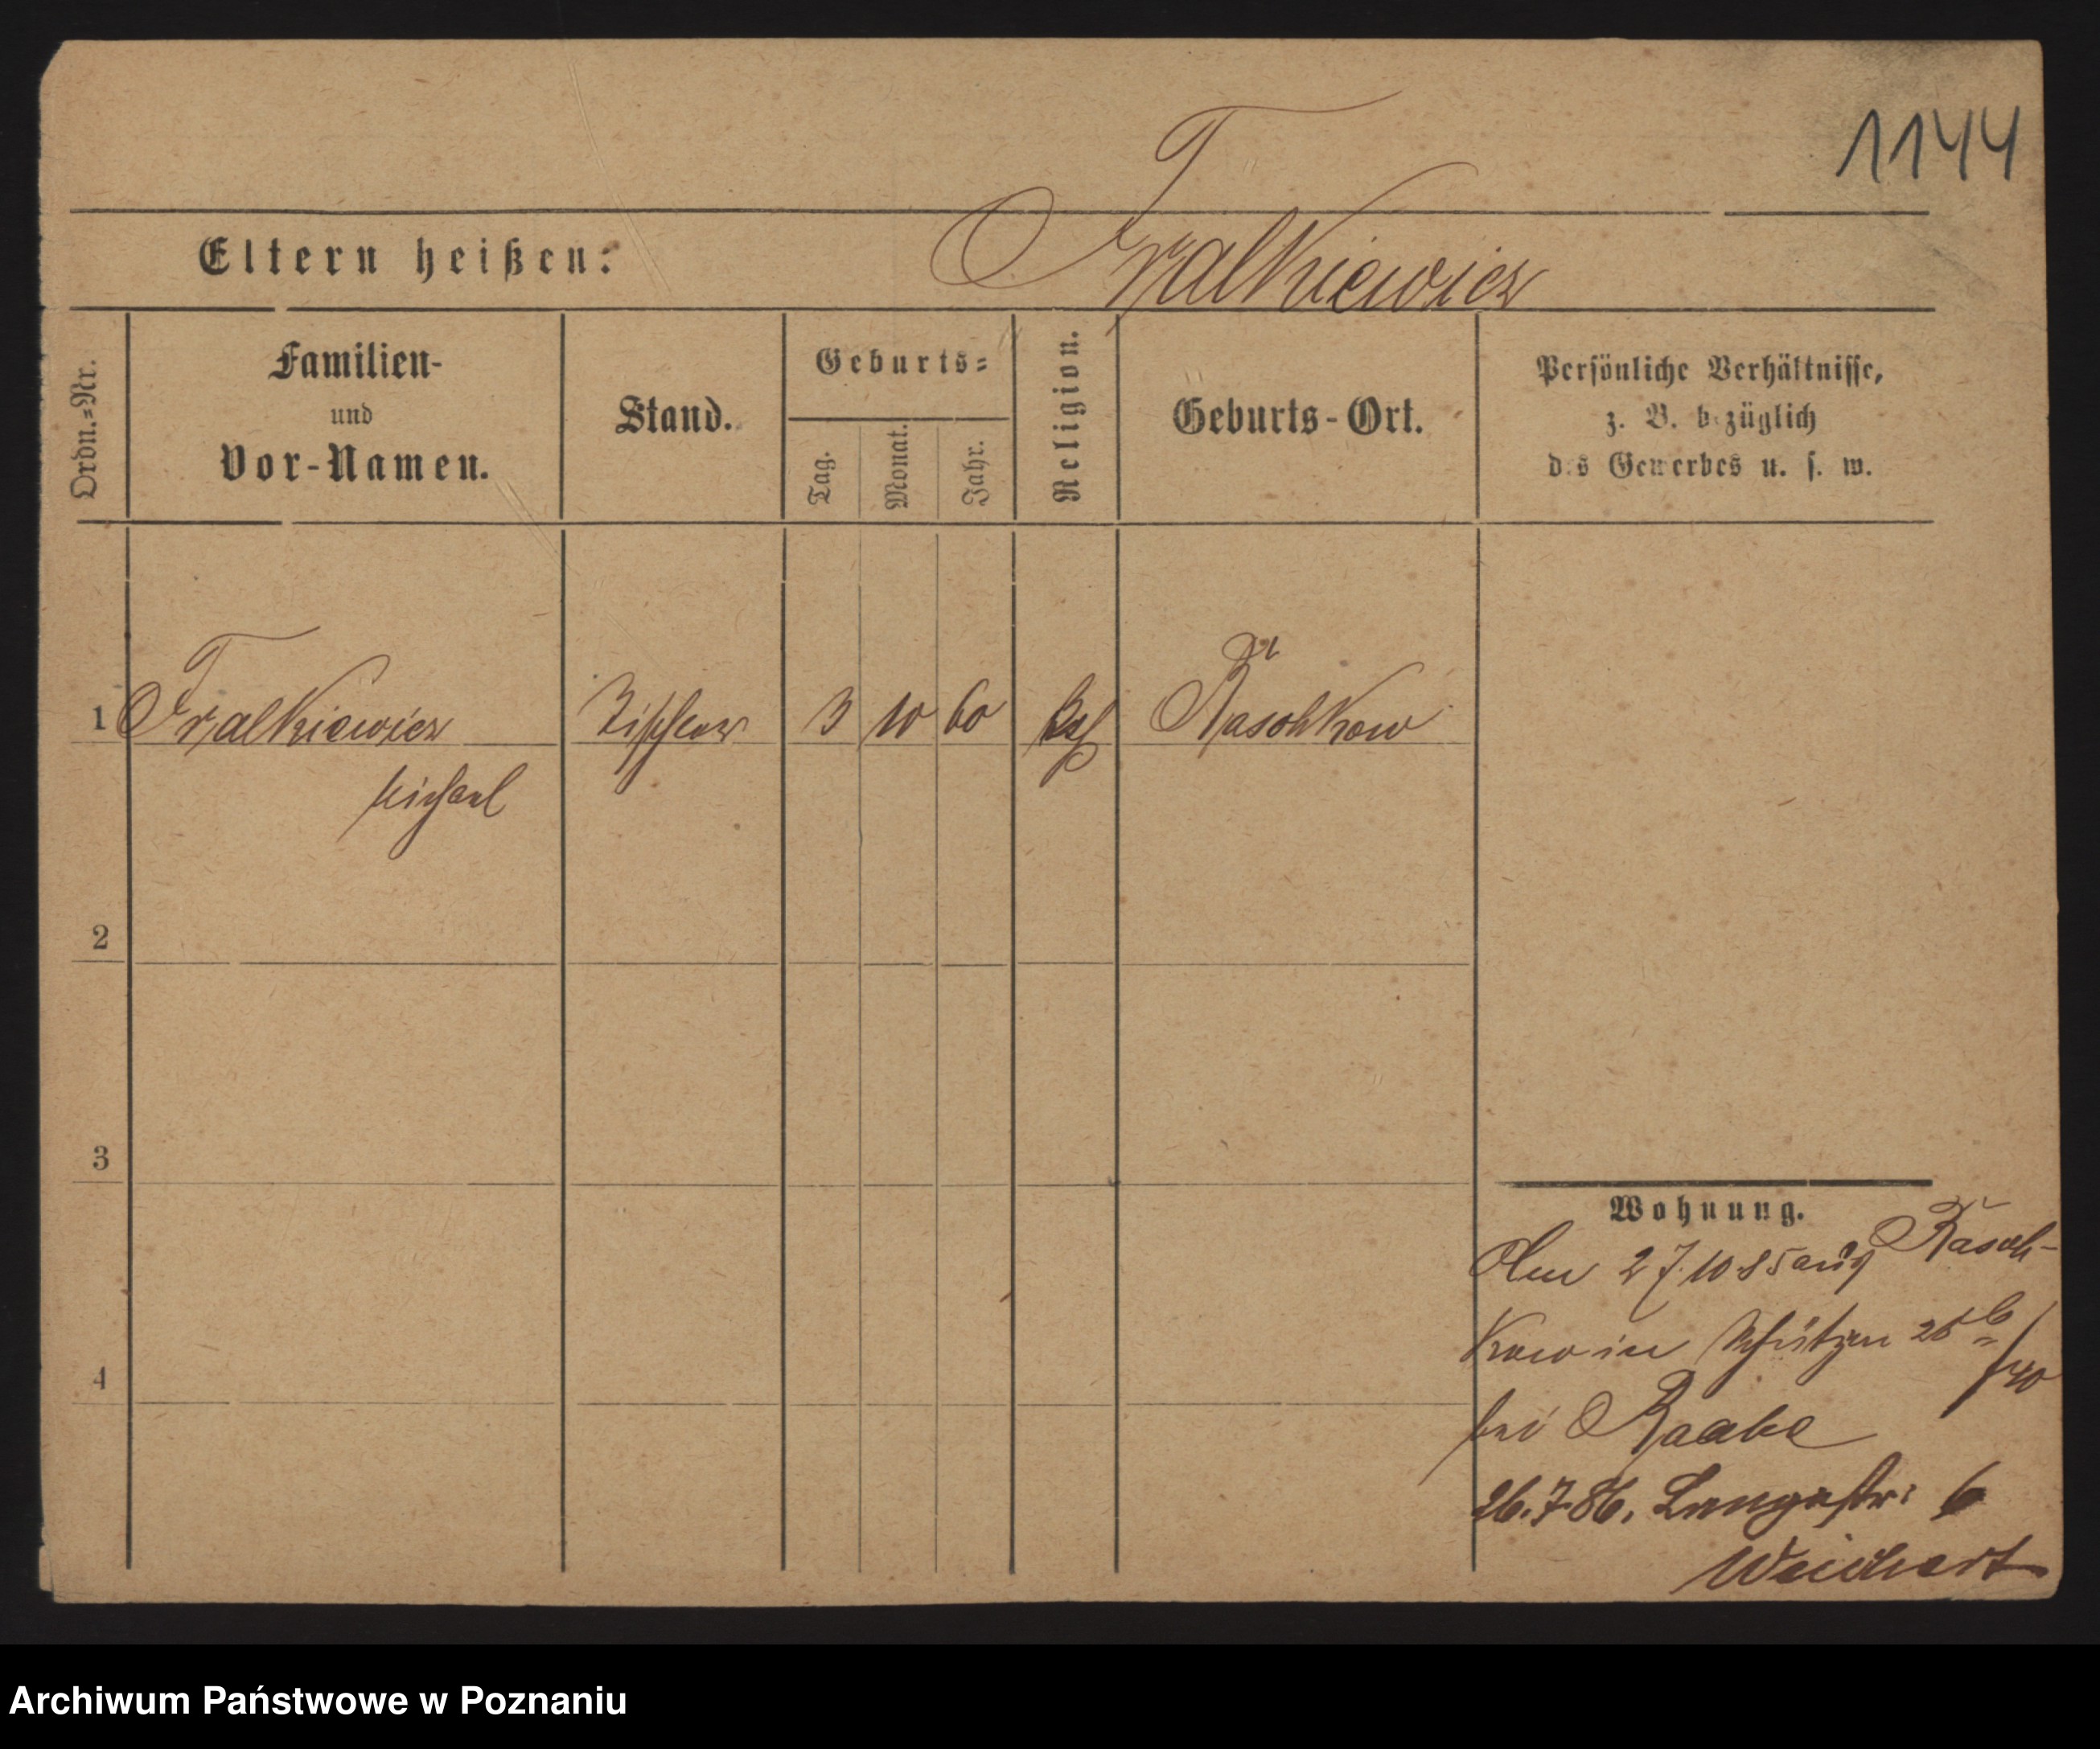 1144
Eltern heißen:
Fralkiewicz
Ordn.=Nr.
Familien-
und
Vor-Namen.
Stand.
Geburts=
Tag.
Monat.
Jahr.
Religion.
Geburts-Ort.
Persönliche Verhältnisse,
z. B. bezüglich
des Gewerbes u. s. w.
1 Fralkiewicz Tischler 3 10 60 kath Raschkow
Michael
2
3
4
Wohnung.
Am 27.10.85 aus Rasch-
kow in Schützen 25b
bei Raabe
26.7.86. Langestr: 6
Weichert
Archiwum Państwowe w Poznaniu